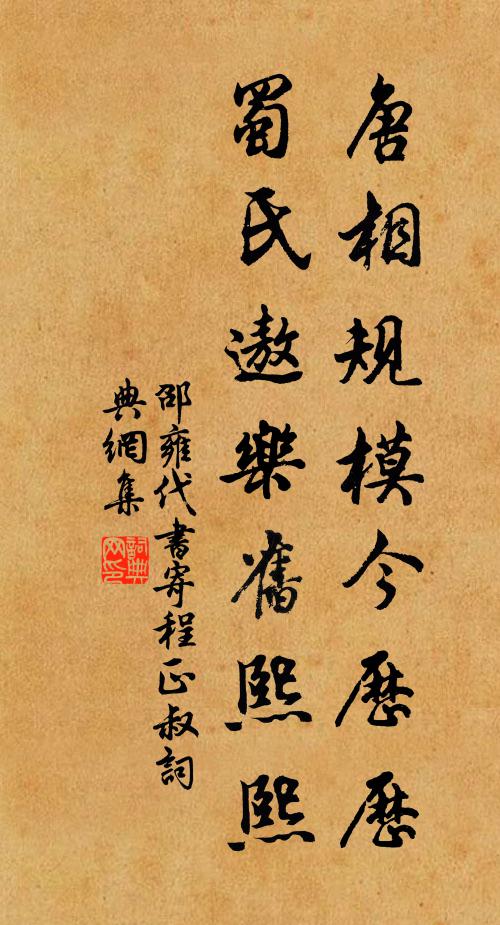 唐相規模今歷歷
蜀氏遨樂舊熙熙
邵雍代書寄程正叔詞
典網集
詞典網印